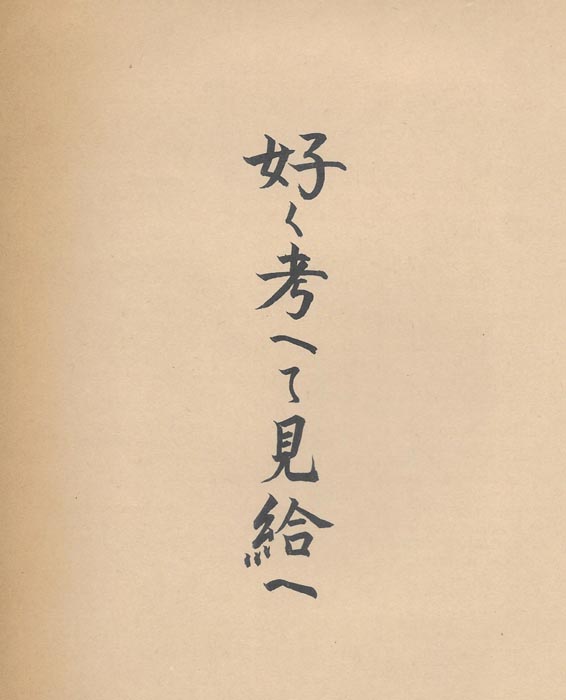 好く考へて見給へ